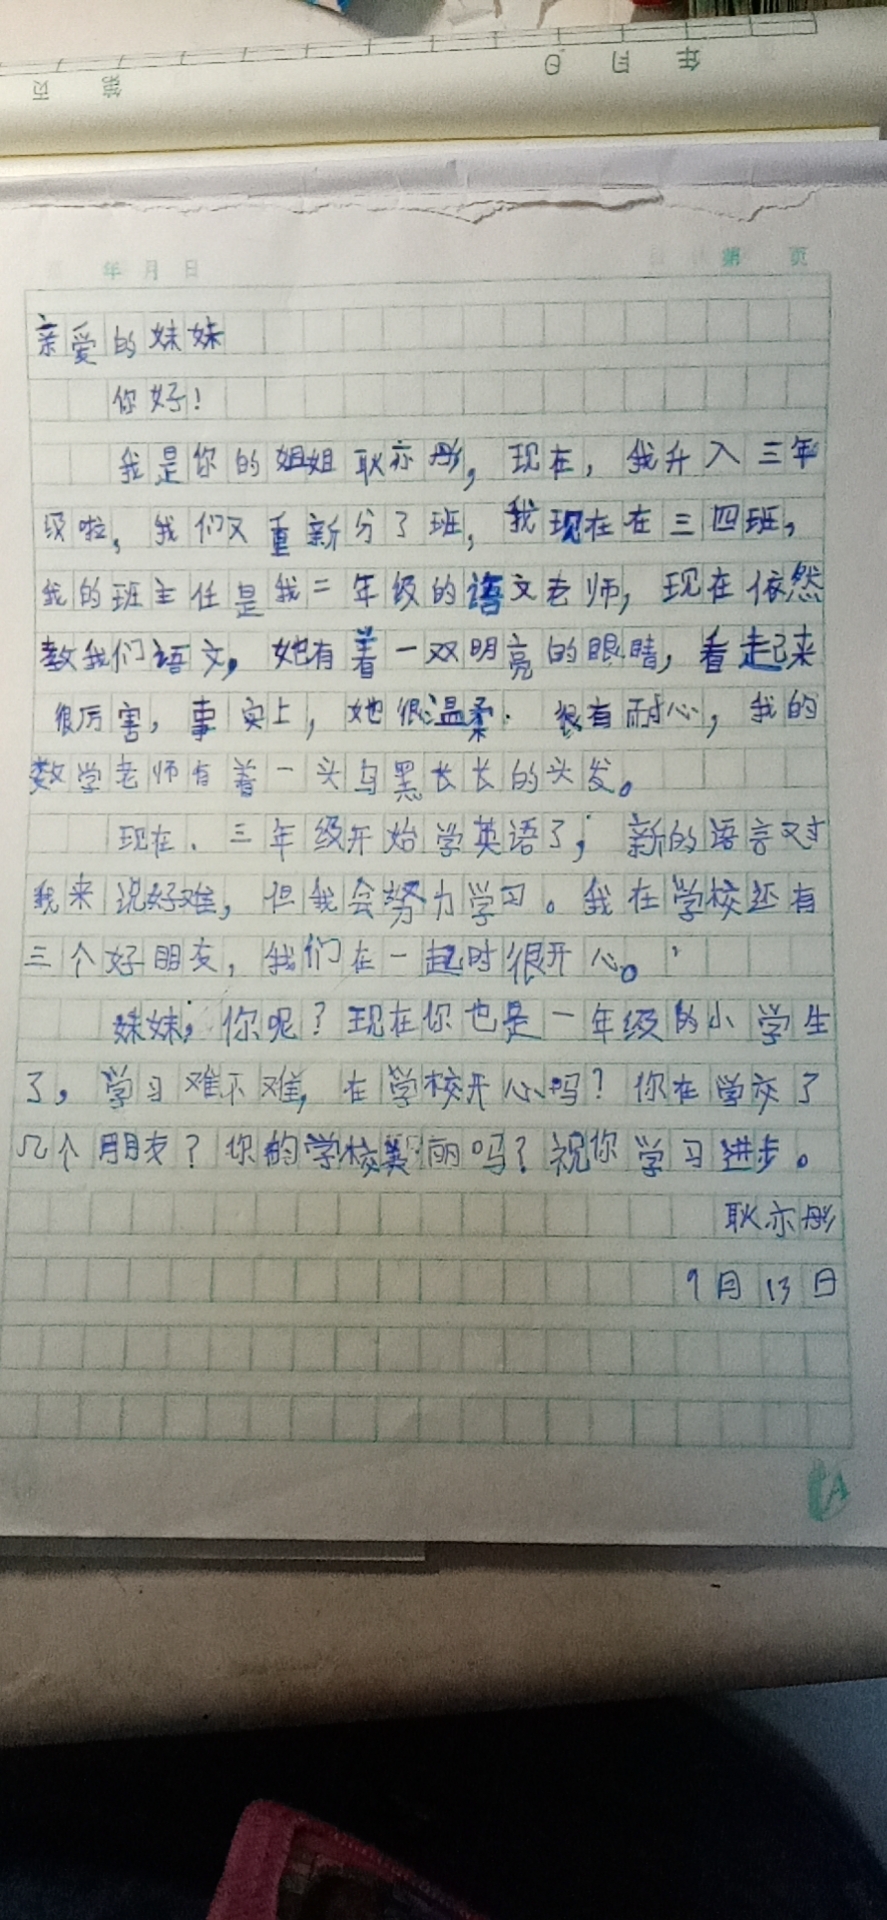 年 月 日
第 页
年 月 日 第 页
亲爱的妹妹
你好！
我是你的姐姐耿亦彤，现在，我升入三年
级啦，我们又重新分了班，我现在在三四班，
我的班主任是我二年级的语文老师，现在依然
教我们语文，她有着一双明亮的眼睛，看起来
很厉害，事实上，她很温柔．很有耐心，我的
数学老师有着一头乌黑长长的头发。
现在．三年级开始学英语了；新的语言对
我来说好难，但我会努力学习。我在学校还有
三个好朋友，我们在一起时很开心。
妹妹，你呢？现在你也是一年级的小学生
了，学习难不难，在学校开心吗？你在学交了
几个朋友？你的学校美丽吗？祝你学习进步。
耿亦彤
9月13日